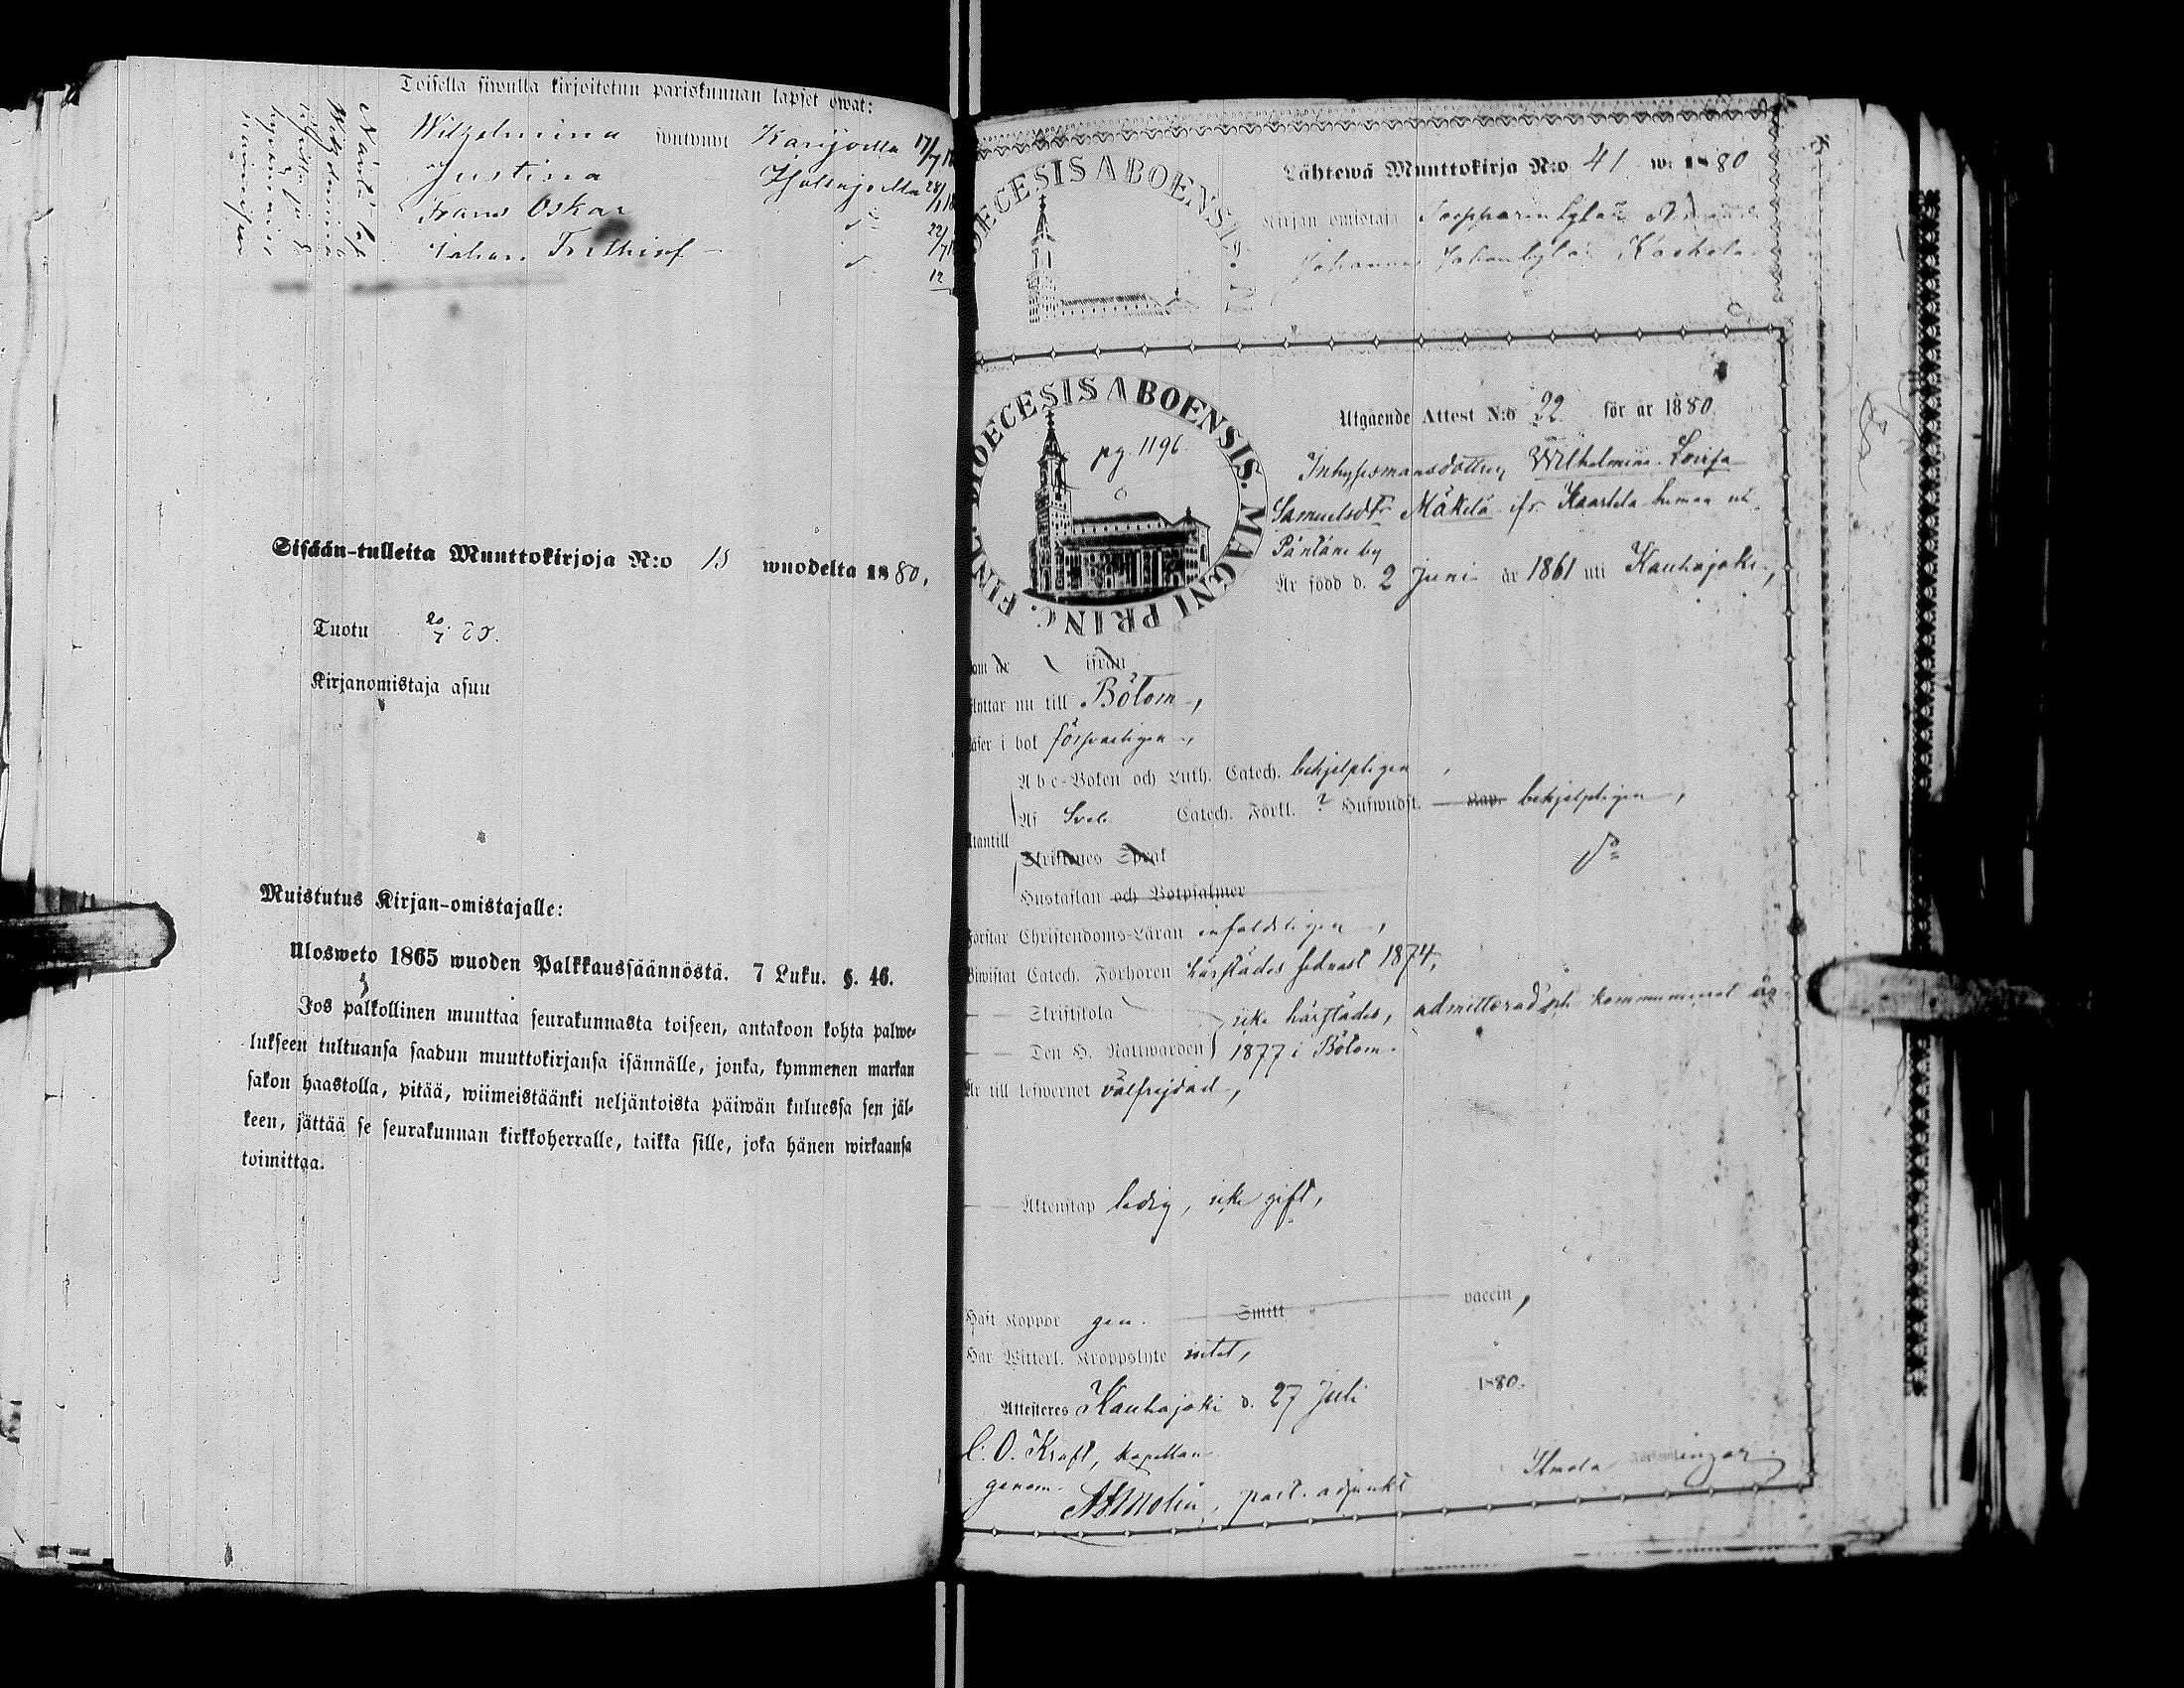 Toisella siwulla kirjoitetun pariskunnan lapset owat:
Wilhelmina syntynyt Karijoella 17/7
Justina
Frans Oskar
Johan Frithiof
Sisään-tulleita Muuttokirjoja N:o 15 wuodelta 1880.
Tuotu 20/7 80.
Kirjanomistaja asuu
Muistutus Kirjan-omistajalle:
Ulosweto 1865 wuoden Palkkaussäännöstä. 7 Luku. §. 46.
Jos palkollinen muuttaa seurakunnasta toiseen, antakoon kohta palwe-
lukseen tultuansa saadun muuttokirjansa isännälle, jonka, kymmenen markan
sakon haastolla, pitää, wiimeistäänki neljäntoista päiwän kuluessa sen jäl-
keen, jättää se seurakunnan kirkkoherralle, taikka sille, joka hänen wirkaansa
toimittaa.
DIOECESIS ABOENSIS. M
Lähtewä Muuttokirja N:o 41 w. 1880
Kirjan omistaja
Johannes
DIOECESIS ABOENSIS. MAGNI PRINC. FINL.
pg. 1196.
Utgående Attest N:o 22 för år 1880.
Inhysesmansdottren Wilhelmina Lovisa
Samuelsdr Mäkelä ifr. Kaartela hemman uti
Päntäne by
Är född d. 2 Juni år 1861 uti Kauhajoki,
om är ifrån
flyttar nu till Bötom,
läser i bok försvarligen,
Abc-Boken och Luth. Catech. behjelpligen,
Af Sveb. Catech. Förkl. ? Hufwudst. Kap. behjelpligen,
Utantill
Skriftenes Språk do
Hustaflan och Botpsalmer
Förstår Christendoms-Läran enfaldeligen,
Biwistat Catech. Förhören härstädes sednast 1874,
Skriftskola
icke härstädes, admitterad och kommunicerat år
Den H. Nattwarden 1877 i Bötom.
Är till lefwernet välfrejdad,
Äktenskap ledig, icke gift,
Haft Koppor gen. Smitt vaccin,
Har Witterl. Kroppslyte intet,
Attesteres Kauhajoki d. 27 Juli 1880.
C. O. Kraft, kapellan
genom
past. adjunkt